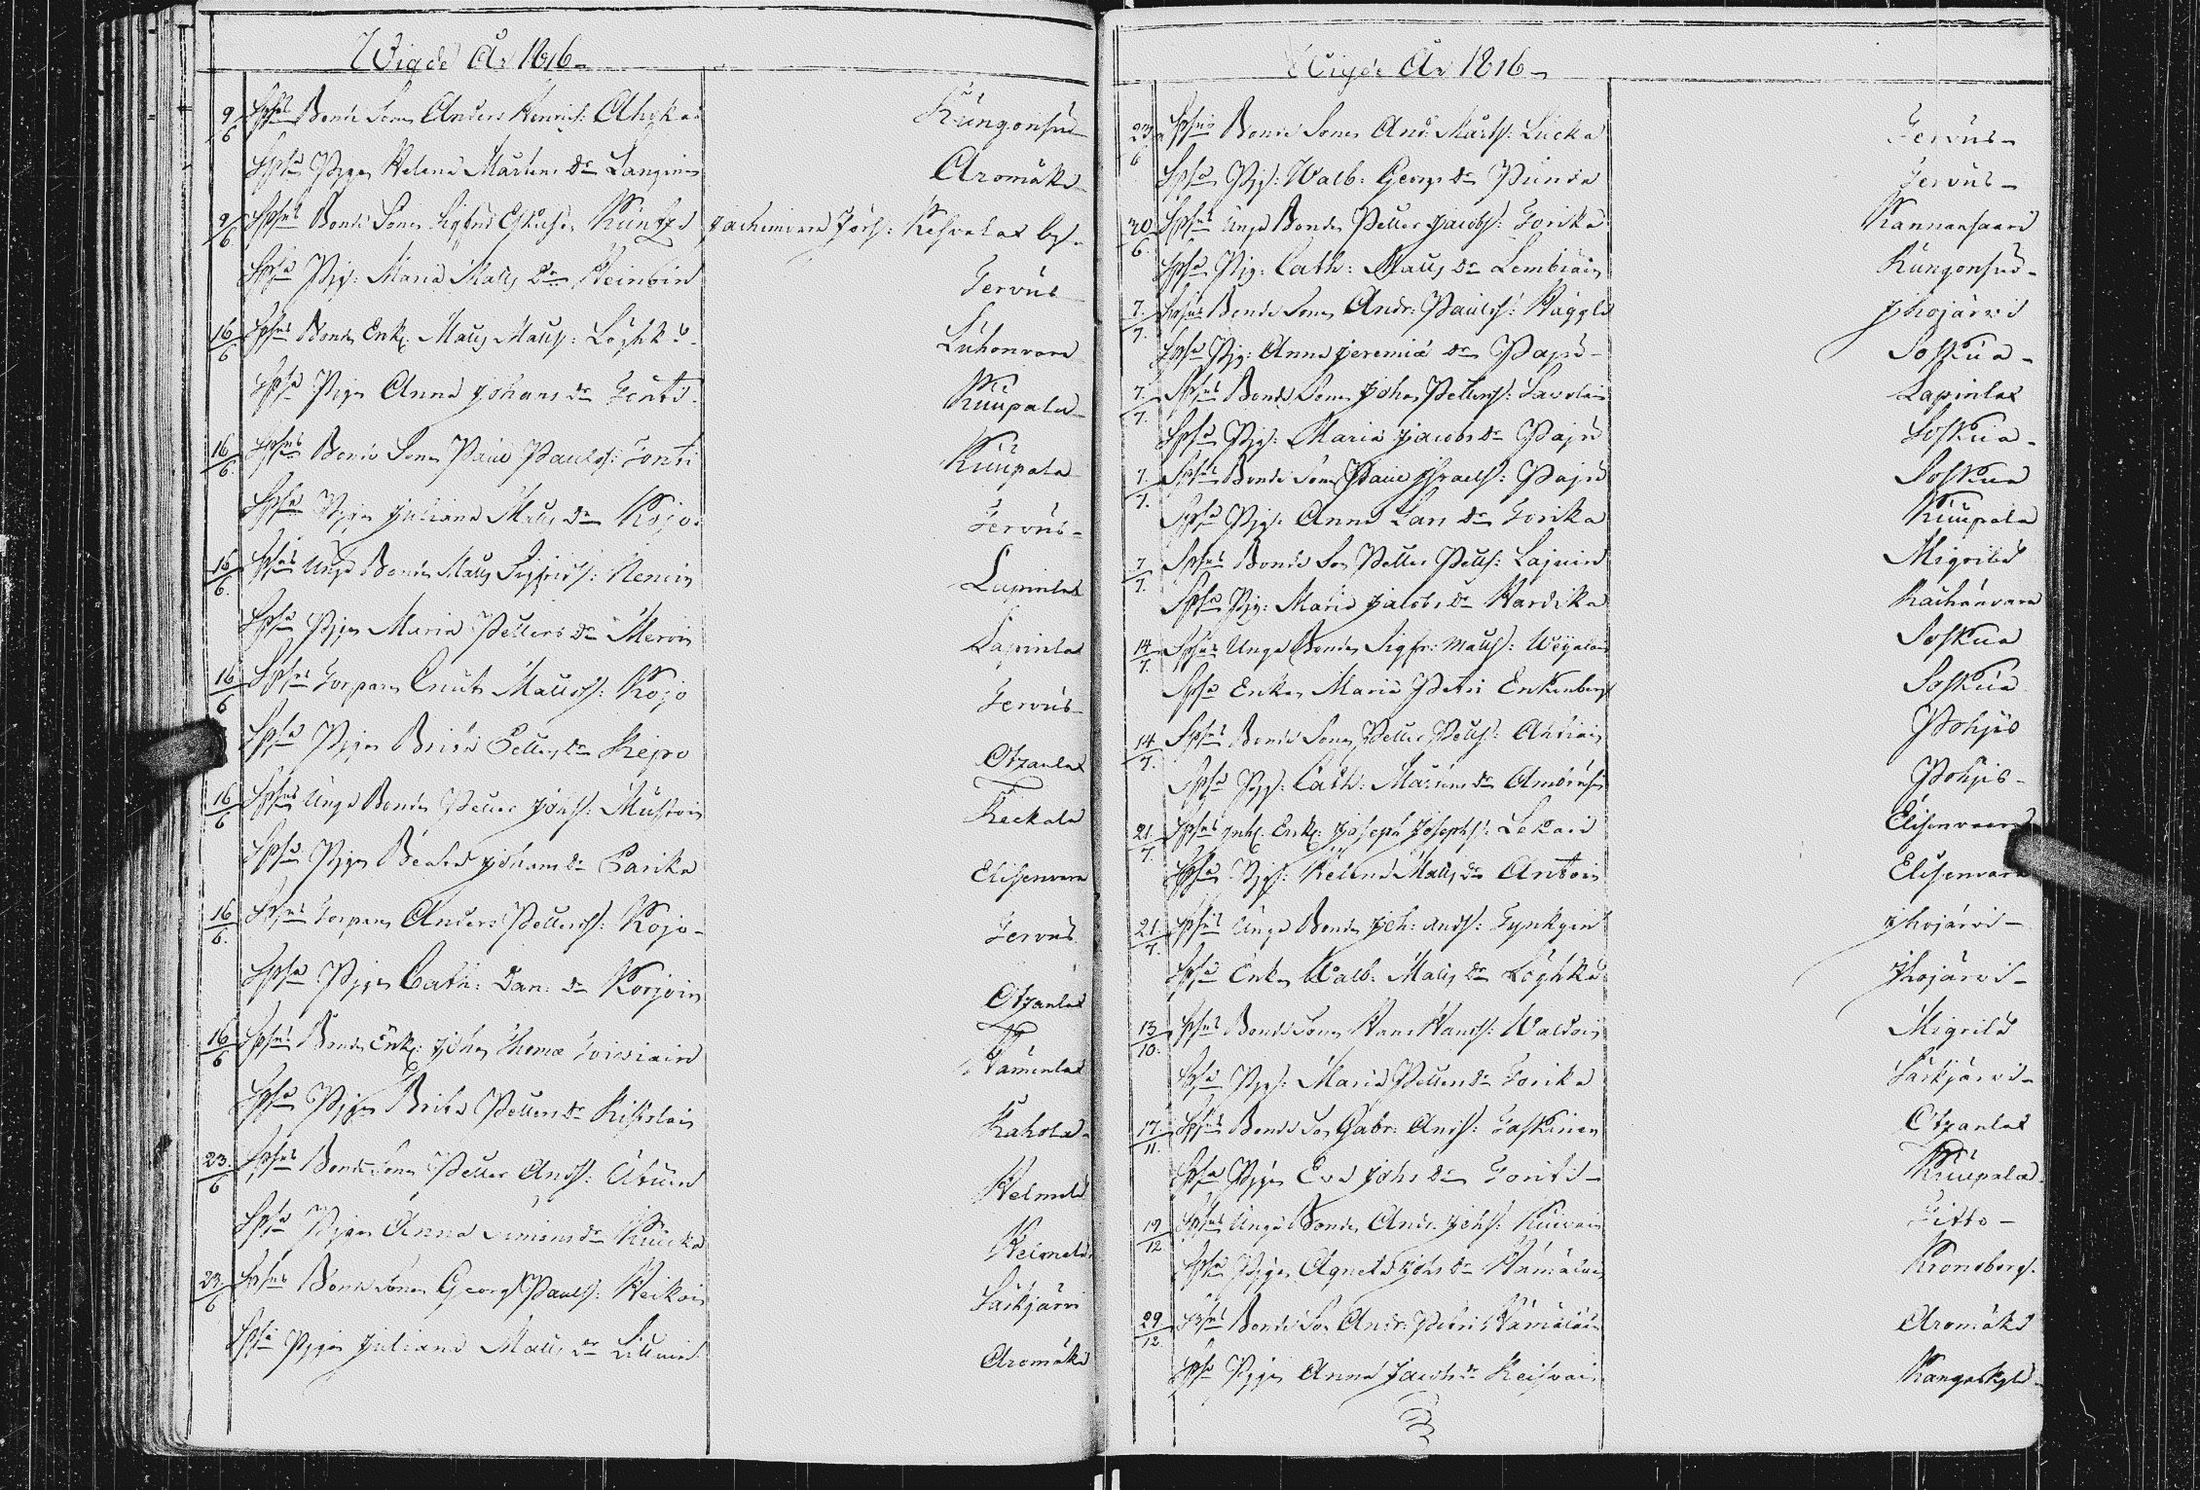 Wigde År 1816
9/6 Spsus Bonde Sonen Anders Henrics: Ahoka Kungonsuo
Spsa Pigan Helena Mårtens dr Langinen Aromäki
9/6 Spsus Bonde Sonen Sigfrid Jachiminäis förs: Kesvalax by
Spsa Pig: Maria Matts dr Heinoin Tervus
16/6 Spsus Bonde Enkl: Matts Matts: Löghkö Luhonvara
Spsa Pigan Anna Johans dr Tontti Kuupala
16/6 Spsus Bonde Sonen Paul Paulss: Tontti Kuupala
Spsa Pigan Juliana Matts dr Kojo Tervus
16/6 Spsus Unge Bonden Matts Sigfrids: Nenoin Lapinlax
Spsa Pigan Maria Petters dr Meroin Lapinlax
16/6 Spsus Torparen Cnut Mattss: Kojo Tervus
Spsa Pigan Brita Petters dr Repo Otzanlax
16/6 Spsus Unge Bonden Petter Johss: Mustoin Reckala
Spsa Pigan Beata Johans dr Parika Elisenvara
16/6 Spsus Torparen Anders Petterss: Kojo Tervus
Spsa Pigan Cath: Dan: dr Korjoin Otzanlax
16/6 Spsus Bonde Enkl: Johan Thomæ Toiviain Hämenlax
Spsa Pigan Brita Petters dr Rahola
23/6 Spsus Bonde Sonen Petter Ands: Helmelä
Spsa Pigan Anna Simons dr Kuicka Heimelä
23/6 Spsus Bonde Sonen Georg Pauls: Heikoin Särkjärvi
Spsa Pigan Juliana Matts dr Aromäki
Wigde År 1816
23/6 Spsus Bonde Sonen And: Mårts: Lucka Tervus
Spsa Pig: Walb: Georgs dr Punda Tervus
30/6 Spsus Unge Bonden Petter Jacobs: Torika Kannansaari
Spsa Pig: Cath: Matts dr Lembiäin Kungonsuo
7/7 Spsus Bonde Sonen Andr: Paulss: Häggle Ihojärvi
Spsa Pig: Anna Jeremiæ dr Paju Soskua
7/7 Spsus Bonde Sonen Johan Petters: Savolain Lapinlax
Spsa Pig: Maria Jacobs dr Paju Soskua
7/7 Spsus Bonde Sonen Paul Israels: Paju Soskua
Spsa Pig: Anna Lars dr Torika Kuupala
7/7 Spsus Bonde Son Petter Petts: Lajuin Migrilä
Spsa Pig: Maria Jacobs dr Hardika Rauhanvara
14/7 Spsus Unge Bonden Sigfr: Matts: Soskua
Spsa Enkan Maria Petri Enkenberg Soskua
14/7 Spsus Bonde Sonen Petter Petts: Ahtiain Pohjis
Spsa Pig: Cath: Mårtens dr Pohjis
21/7 Spsus Inh: Enkl: Joseph Josephs: Elisenvaara
Spsa Pig: Helena Matts dr Antoin Elisenvara
21/7 Spsus Unge Bonden Joh: Ands: Tynkynen Ihojärvi
Spsa Enkan Walb: Matts dr Löghkö Ihojärvi
13/10 Spsus Bonde Sonen Hans Hanss: Waldoin Migrilä
Spsa Pig: Maria Petters dr Torika Särkjärvi
17/11 Spsus Bonde Son Gabr: Ands: Taskinen Otzanlax
Spsa Pigan Eva Johs dr Tontti Kuupala
19/12 Spsus Unge Bonden Andr: Johs: Kuivain Titto
Spsa Pigan Agneta Johs dr Hämäläin Kronoborg
29/12 Spsus Bonde Son Andr: Petri Hämäläin Aromäki
Spsa Pigan Anna Jacobs dr Kangaskylä